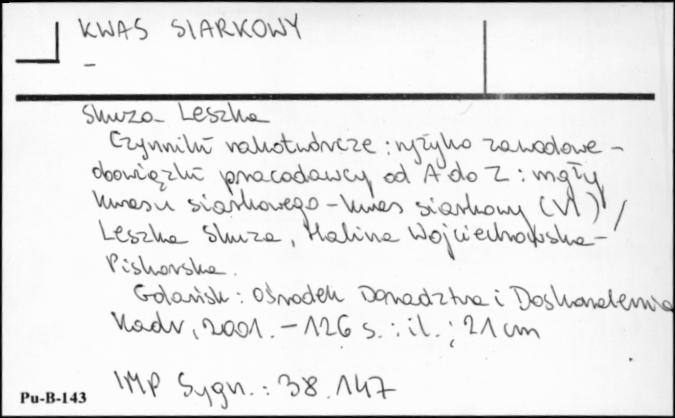 KWAS SIARKOWY
–
Skuza Leszka
Czynniki rakotwórcze : ryzyko zawodowe –
obowiązki pracodawcy od A do Z : mgły
kwasu siarkowego – kwas siarkowy (VI) /
Leszka Skuza, Halina Wojciechowska-
Piskorska.
Gdańsk : Ośrodek Doradztwa i Doskonalenia
Kadr, 2001. – 126 s. : il. ; 21 cm
IMP Sygn. : 38.147
Pu-B-143